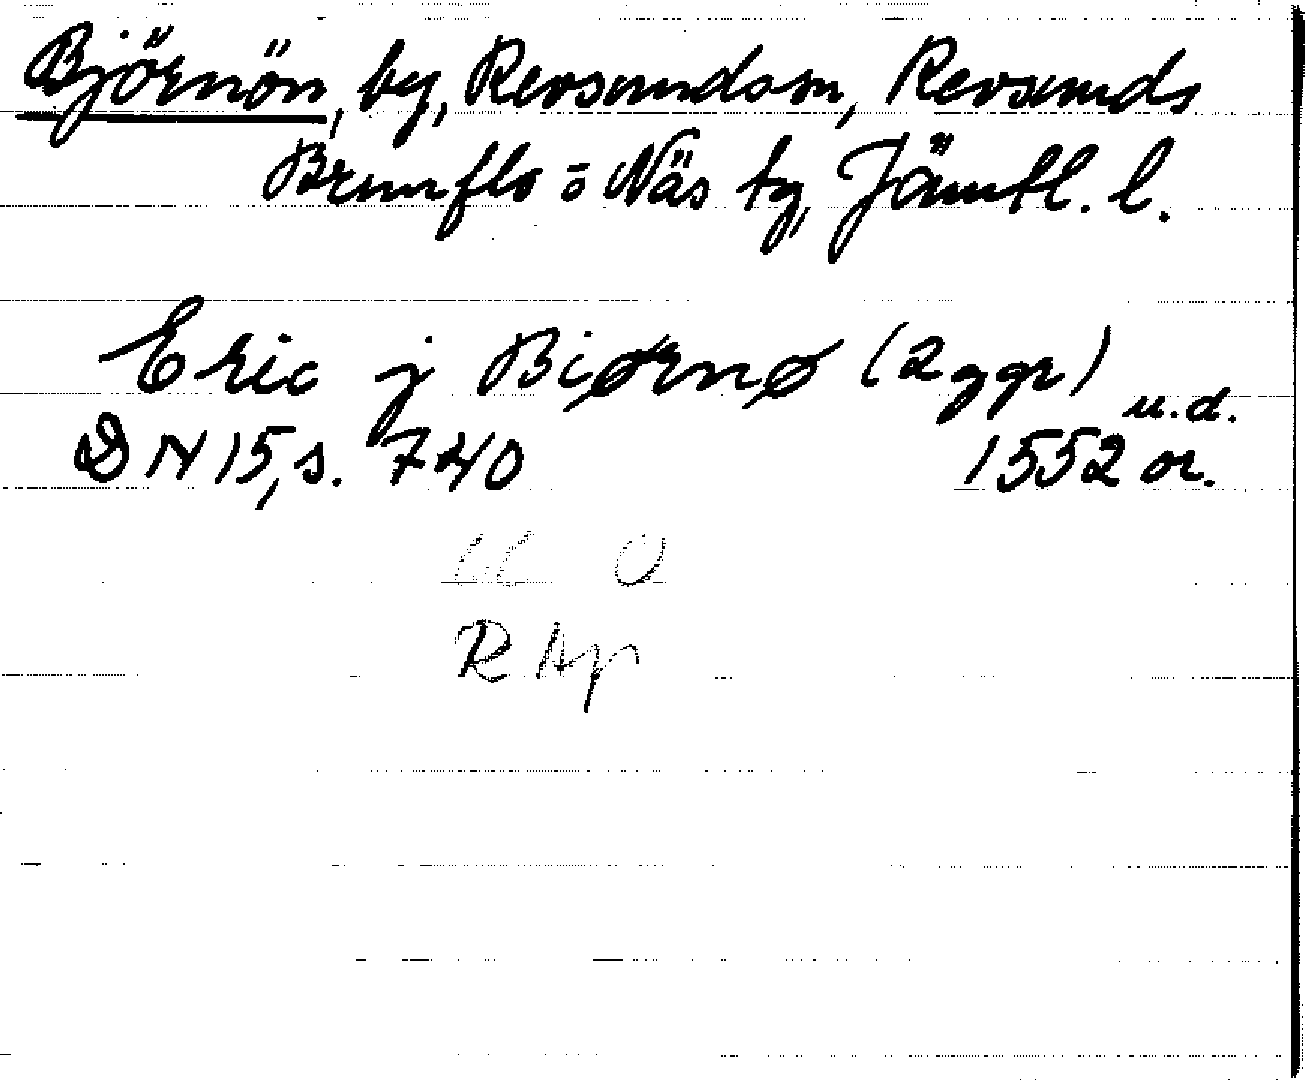 Björnön, by, Revsunds sn, Revsunds
Brunflo o Näs tg, Jämtl. l.
Eric j Biørnø (2 ggr)
u.d.
DN 15, s. 740 1552 or.